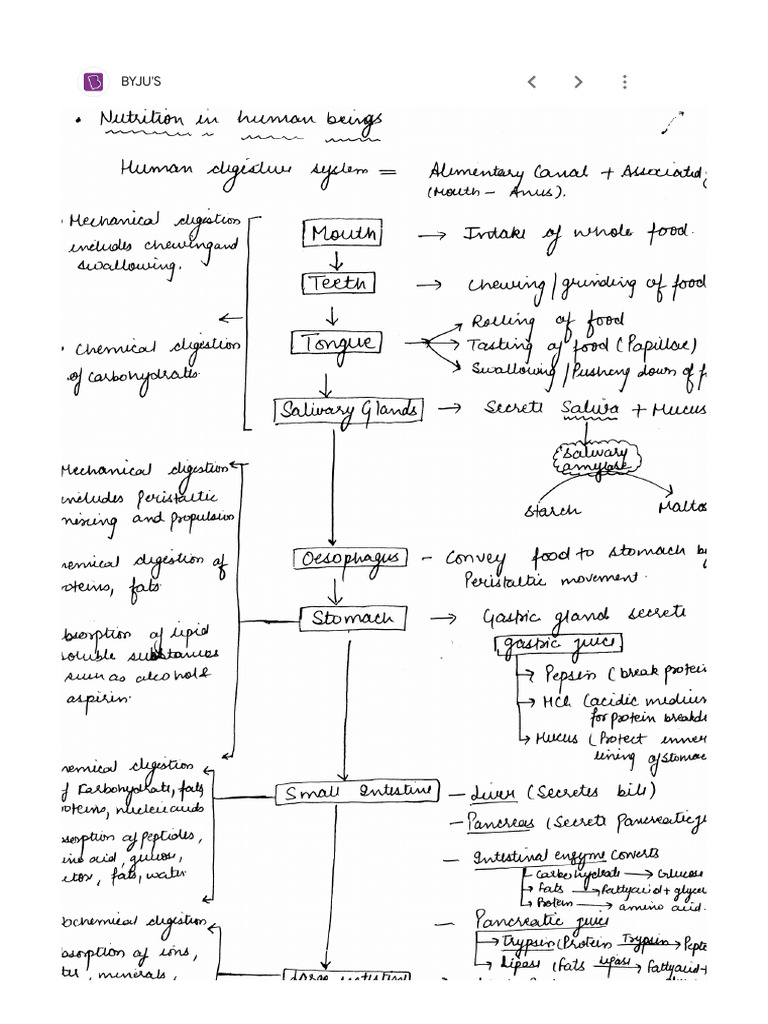 BYJU'S
• Nutrition in human beings
Human digestive system = Alimentary Canal + Associated
(Mouth – Anus).
• Mechanical digestion
includes chewing and
swallowing.
• Chemical digestion
of carbohydrates.
Mouth → Intake of whole food.
Teeth → Chewing/grinding of food
Tongue → Rolling of food
→ Tasting of food (Papillae)
→ Swallowing/Pushing down of f
Salivary Glands → Secrete Saliva + Mucus
Salivary
amylase
Starch Maltos
Mechanical digestion
includes Peristaltic
mixing and propulsion
hemical digestion of
roteins, fats
bsorption of lipid
soluble substances
such as alcohol &
aspirin.
Oesophagus – Convey food to stomach b
Peristaltic movement.
Stomach → Gastric gland secrete
gastric juice
→ Pepsin (break protein
→ HCl (acidic medium
for protein breakd
→ Mucus (Protect inner
lining of stomac
hemical digestion
f Carbohydrate, fats
roteins, nucleic acids
sorption of peptides,
ino acid, glucose,
ctos, fats, water
Small Intestine – Liver (Secretes bile)
– Pancreas (Secrete Pancreatic ju
– Intestinal enzyme converts
Carbohydrate → Glucose
Fats → Fatty acid + glycer
Protein → amino acid.
– Pancreatic juice
→ Trypsin (Protein Trypsin → Pepte
→ Lipase (Fats Lipase → Fatty acid +
ochemical digestion
bsorption of ions,
ter, minerals,
Large intestine